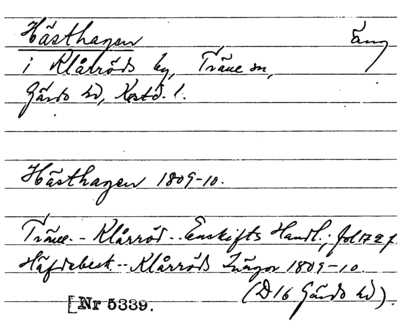 Hästhagen äng
i Klårröds by, Träne sn,
Gärds hd, Krstd. l.
Hästhagen 1809-10.
Träne - Klårröd - Enskifts Handl.; fol 17 a f.
Häfdebeck - Klårröds Längor 1809-10.
(D16 Gärds hd).
[Nr 5339.